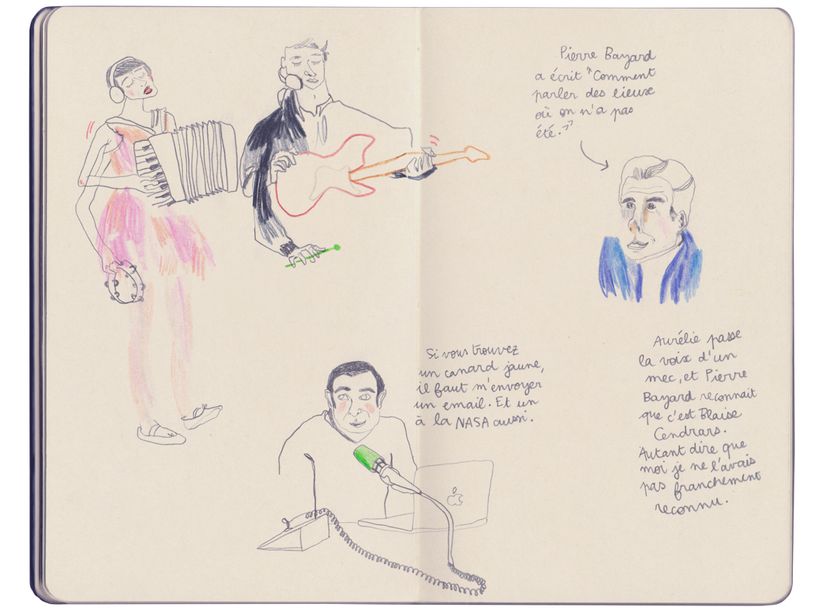 Pierre Bayard
a écrit "Comment
parler des lieux
où on n'a pas
été."
Si vous trouvez
un canard jaune,
il faut m'envoyer
un email. Et un
à la NASA aussi.
Aurélie passe
la voix d'un
mec, et Pierre
Bayard reconnait
que c'est Blaise
Cendrars.
Autant dire que
moi je ne l'avais
pas franchement
reconnu.